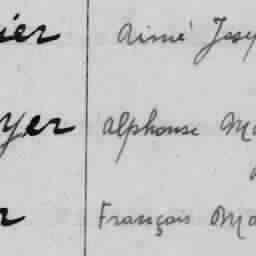 ier Aimé Josep
yer Alphonse Ma
r François Ma